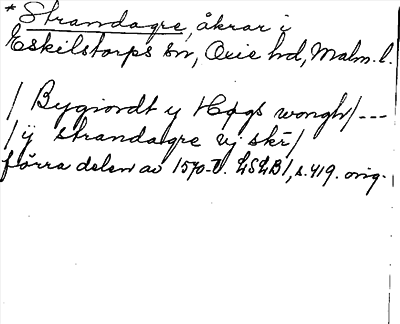 * Strandagre, åkrar i
Eskilstorps sn, Oxie hd, Malm. l.
/ Bygiordt y Høgs wongh/ ---
/ ÿ strandagre vj skr̄ /
förra delen av 1570-t. LSLB 1, s. 419. orig.